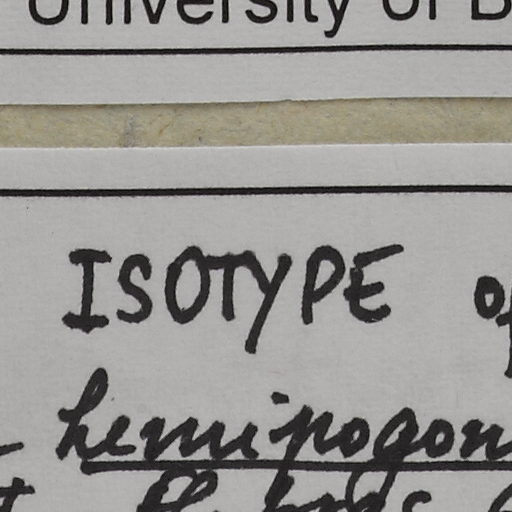 University of B
ISOTYPE of
hemipogon